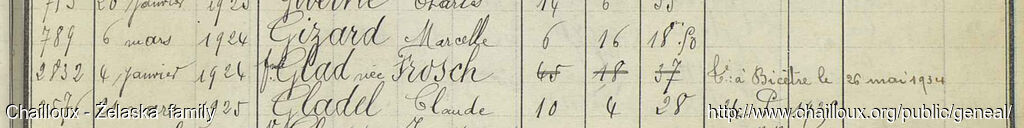 20 Janvier 1925 14 6 55
789 6 mars 1924 Gizard Marcelle 6 16 18.50
2832 4 Janvier 1924 Glad née Frosch 45 18 37 à Bicêtre le 26 mai 1934
1925 Gladel Claude 10 4 28
Chailloux - Zelaska family
http://www.chailloux.org/public/geneal/